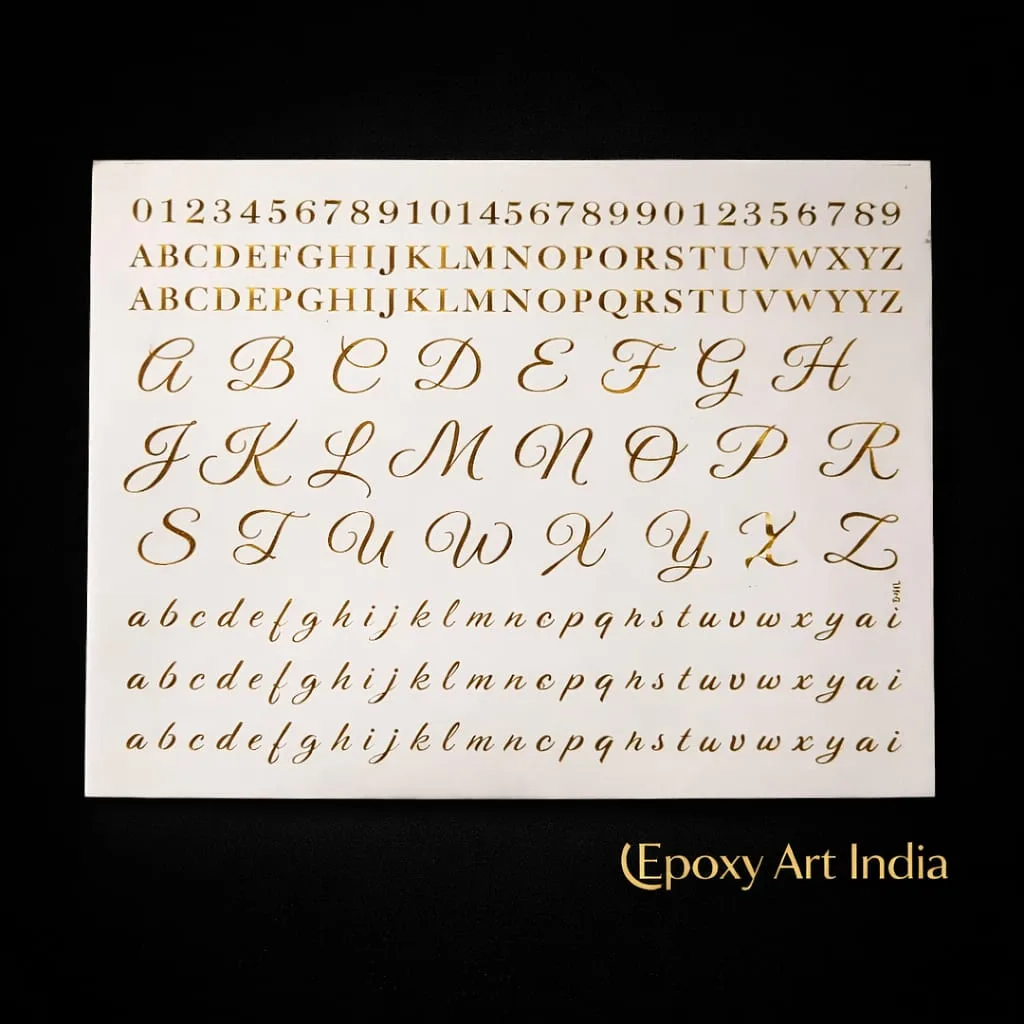 0123456789101456789901235 6789
ABCDEFGHIJKLMNOPORSTUVWXYZ
ABCDEPGHIJKLMNOPQRSTUVWYYZ
A B C D E F G H
J K L M N O P R
S T U W X Y Z Z
a b c d e f g h i j k l m n c p q h s t u v w x y a i
a b c d e f g h i j k l m n c p q h s t u v w x y a i
a b c d e f g h i j k l m n c p q h s t u v w x y a i
Epoxy Art India